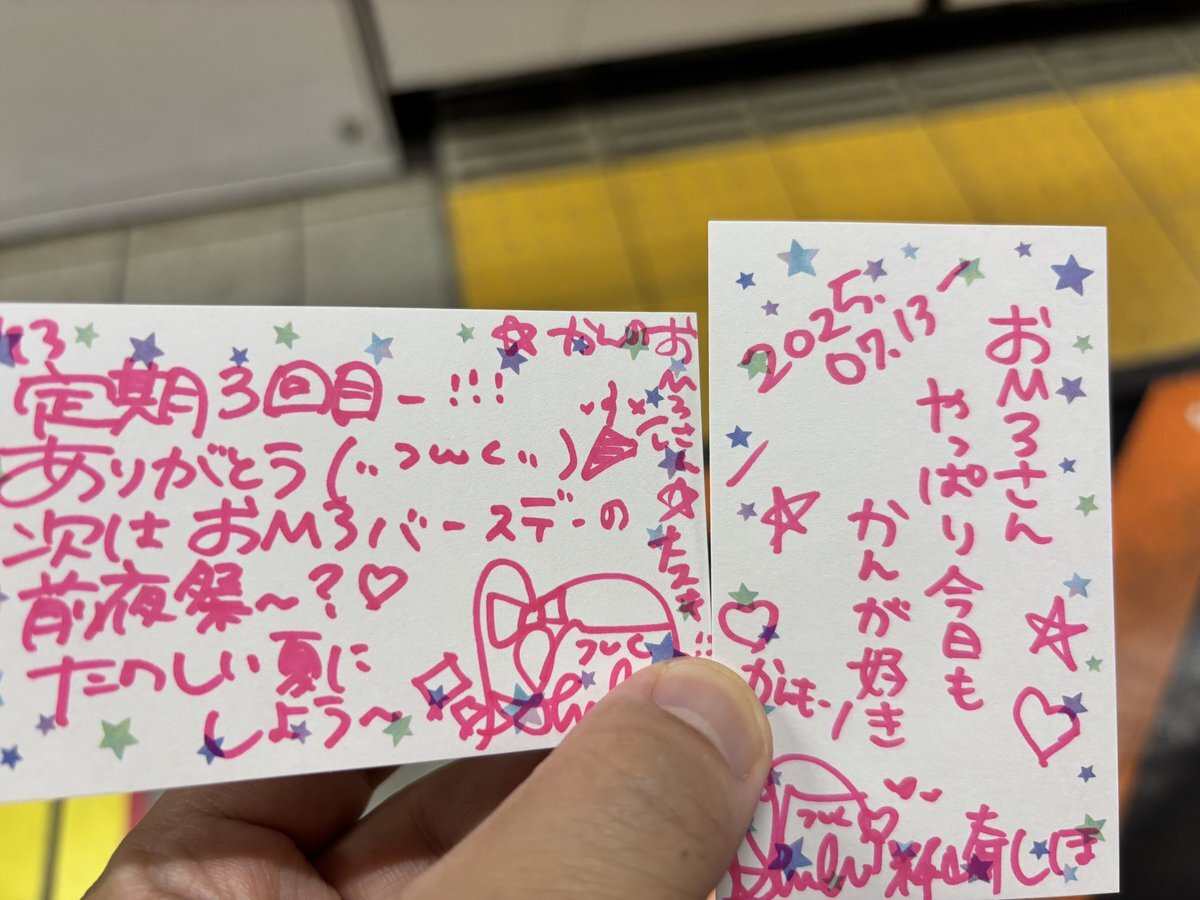 定期3回目ー!!!
ありがとう(՞ つwc ՞)
次はおM3バースデーの
前夜祭〜?♡
たのしい夏に
しよう〜
☆かんのお
M3さん☆
2025.
07.13
おM3さん
やっぱり今日も
かんが好き
かんもー!